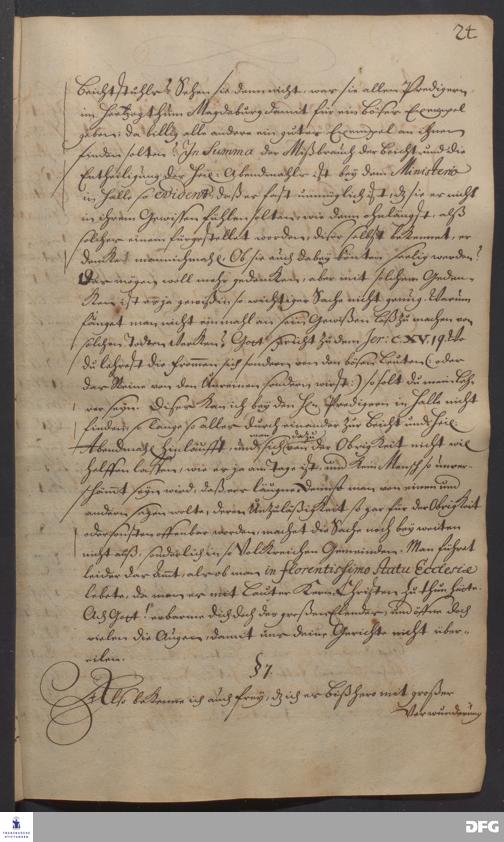 24
Beichtstuhls? Sehen sie dann nicht, was sie allen Predigern
im Hertzogthum Magdeburg damit für ein böses Exempel
geben, da billig alle andere ein gutes Exempel an ihnen
finden solten? In Summa der Mißbrauch der Beicht und die
Entheiligung des Heil. Abendmahls ist bey dem Ministerio
in Halle so evident, daß es fast unmüglich ist, dz sie es nicht
in ihrem Gewissen fühlen solten, wie dann ohnlängst, alß
solches einem fürgestellet worden, dieser selbst bekennet, er
dencke mannichmahl, Ob sie auch dabey könten seelig werden?
Das mögen woll mehr gedencken, aber mit solchem Geden-
cken ist es ja gewiß in so wichtiger Sache nicht genug. Warum
fänget man nicht einmahl an sein Gewißen loß zu machen von
solchen todten Wercken? Gott spricht zu dem Jer: c. XV. 19. Wo
du lehrest die Frommen sich sondern von den bösen Leuten (: oder
das Reine von den Unreinen sondern wirst :) so solt du mein Leh-
rer seyn. Dieses kan ich bey den Hn Predigern in Halle nicht
finden, so lange so alles durch einander zur Beicht und Heil.
Abendmahl hinlaufft, und man sich dazu von der Obrigkeit nicht wil
helffen lassen, wie es ja am Tage ist, und kein Mensch so unver-
schämt seyn wird, daß er läugne. Denn so man von einem und
andern sagen wolte, deren Unzuläßigkeit so gar für der Obrigkeit
oder sonsten offenbar worden, machet die Sache noch bey weiten
nicht auß, sonderlich in so Volckreichen Gemeinden. Man führet
leider das Amt, als ob man in florentissimo statu Ecclesiæ
lebete, da man es mit lauter Kern-Christen zu thun hätte.
Ach Gott! erbarme dich doch des großen Elendes, und öffne doch
vielen die Augen, damit uns deine Gerichte nicht über-
eilen.
§ 7.
Also bekenne ich auch frey, dz ich es bißhero mit großer
Verwunderung
FRANCKESCHE
STIFTUNGEN
DFG